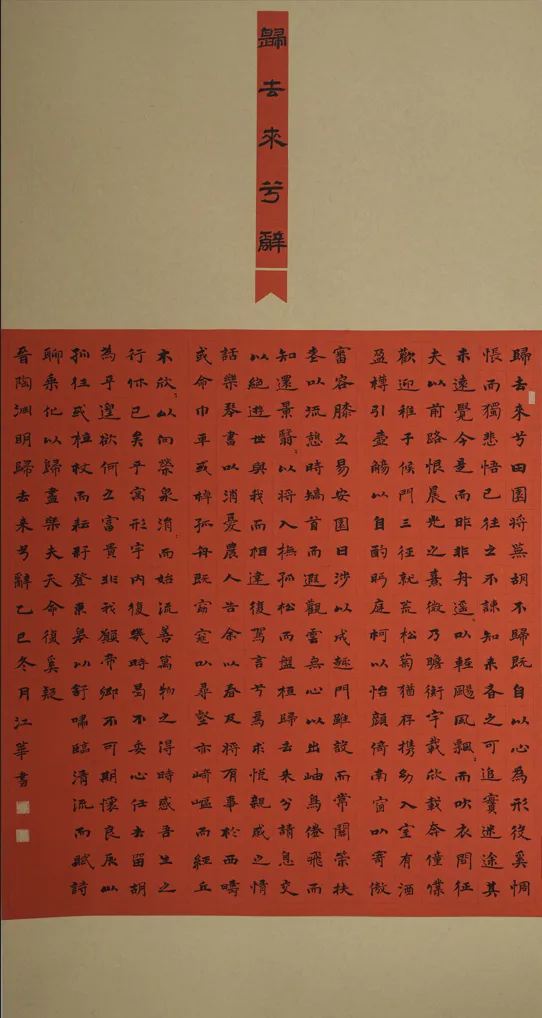 歸去來兮辭
歸去來兮田園將蕪胡不歸既自以心為形役奚惆
悵而獨悲悟已往之不諫知来者之可追實迷途其
未遠覺今是而昨非舟遥〻以輕颺風飄〻而吹衣問征
夫以前路恨晨光之熹微乃瞻衡宇載欣載奔僮僕
歡迎稚子候門三徑就荒松菊猶存携幼入室有酒
盈樽引壺觴以自酌眄庭柯以怡顏倚南窗以寄傲
審容膝之易安園日涉以成趣門雖設而常關策扶
老以流憩時矯首而遐觀雲無心以出岫鳥倦飛而
知還景翳〻以將入撫孤松而盤桓歸去来兮請息交
以絕遊世與我而相違復駕言兮焉求悅親戚之情
話樂琴書以消憂農人告余以春及將有事於西疇
或命巾車或棹孤舟既窈窕以尋壑亦崎嶇而經丘
木欣〻以向榮泉涓〻而始流善萬物之得時感吾生之
行休已矣乎寓形宇内復幾時曷不委心任去留胡
為乎遑〻欲何之富貴非我願帝鄉不可期懷良辰以
孤往或植杖而耘耔登東皋以舒嘯臨清流而賦詩
聊乘化以歸盡樂夫天命復奚疑
晉陶淵明歸去来兮辭乙巳冬月江華書